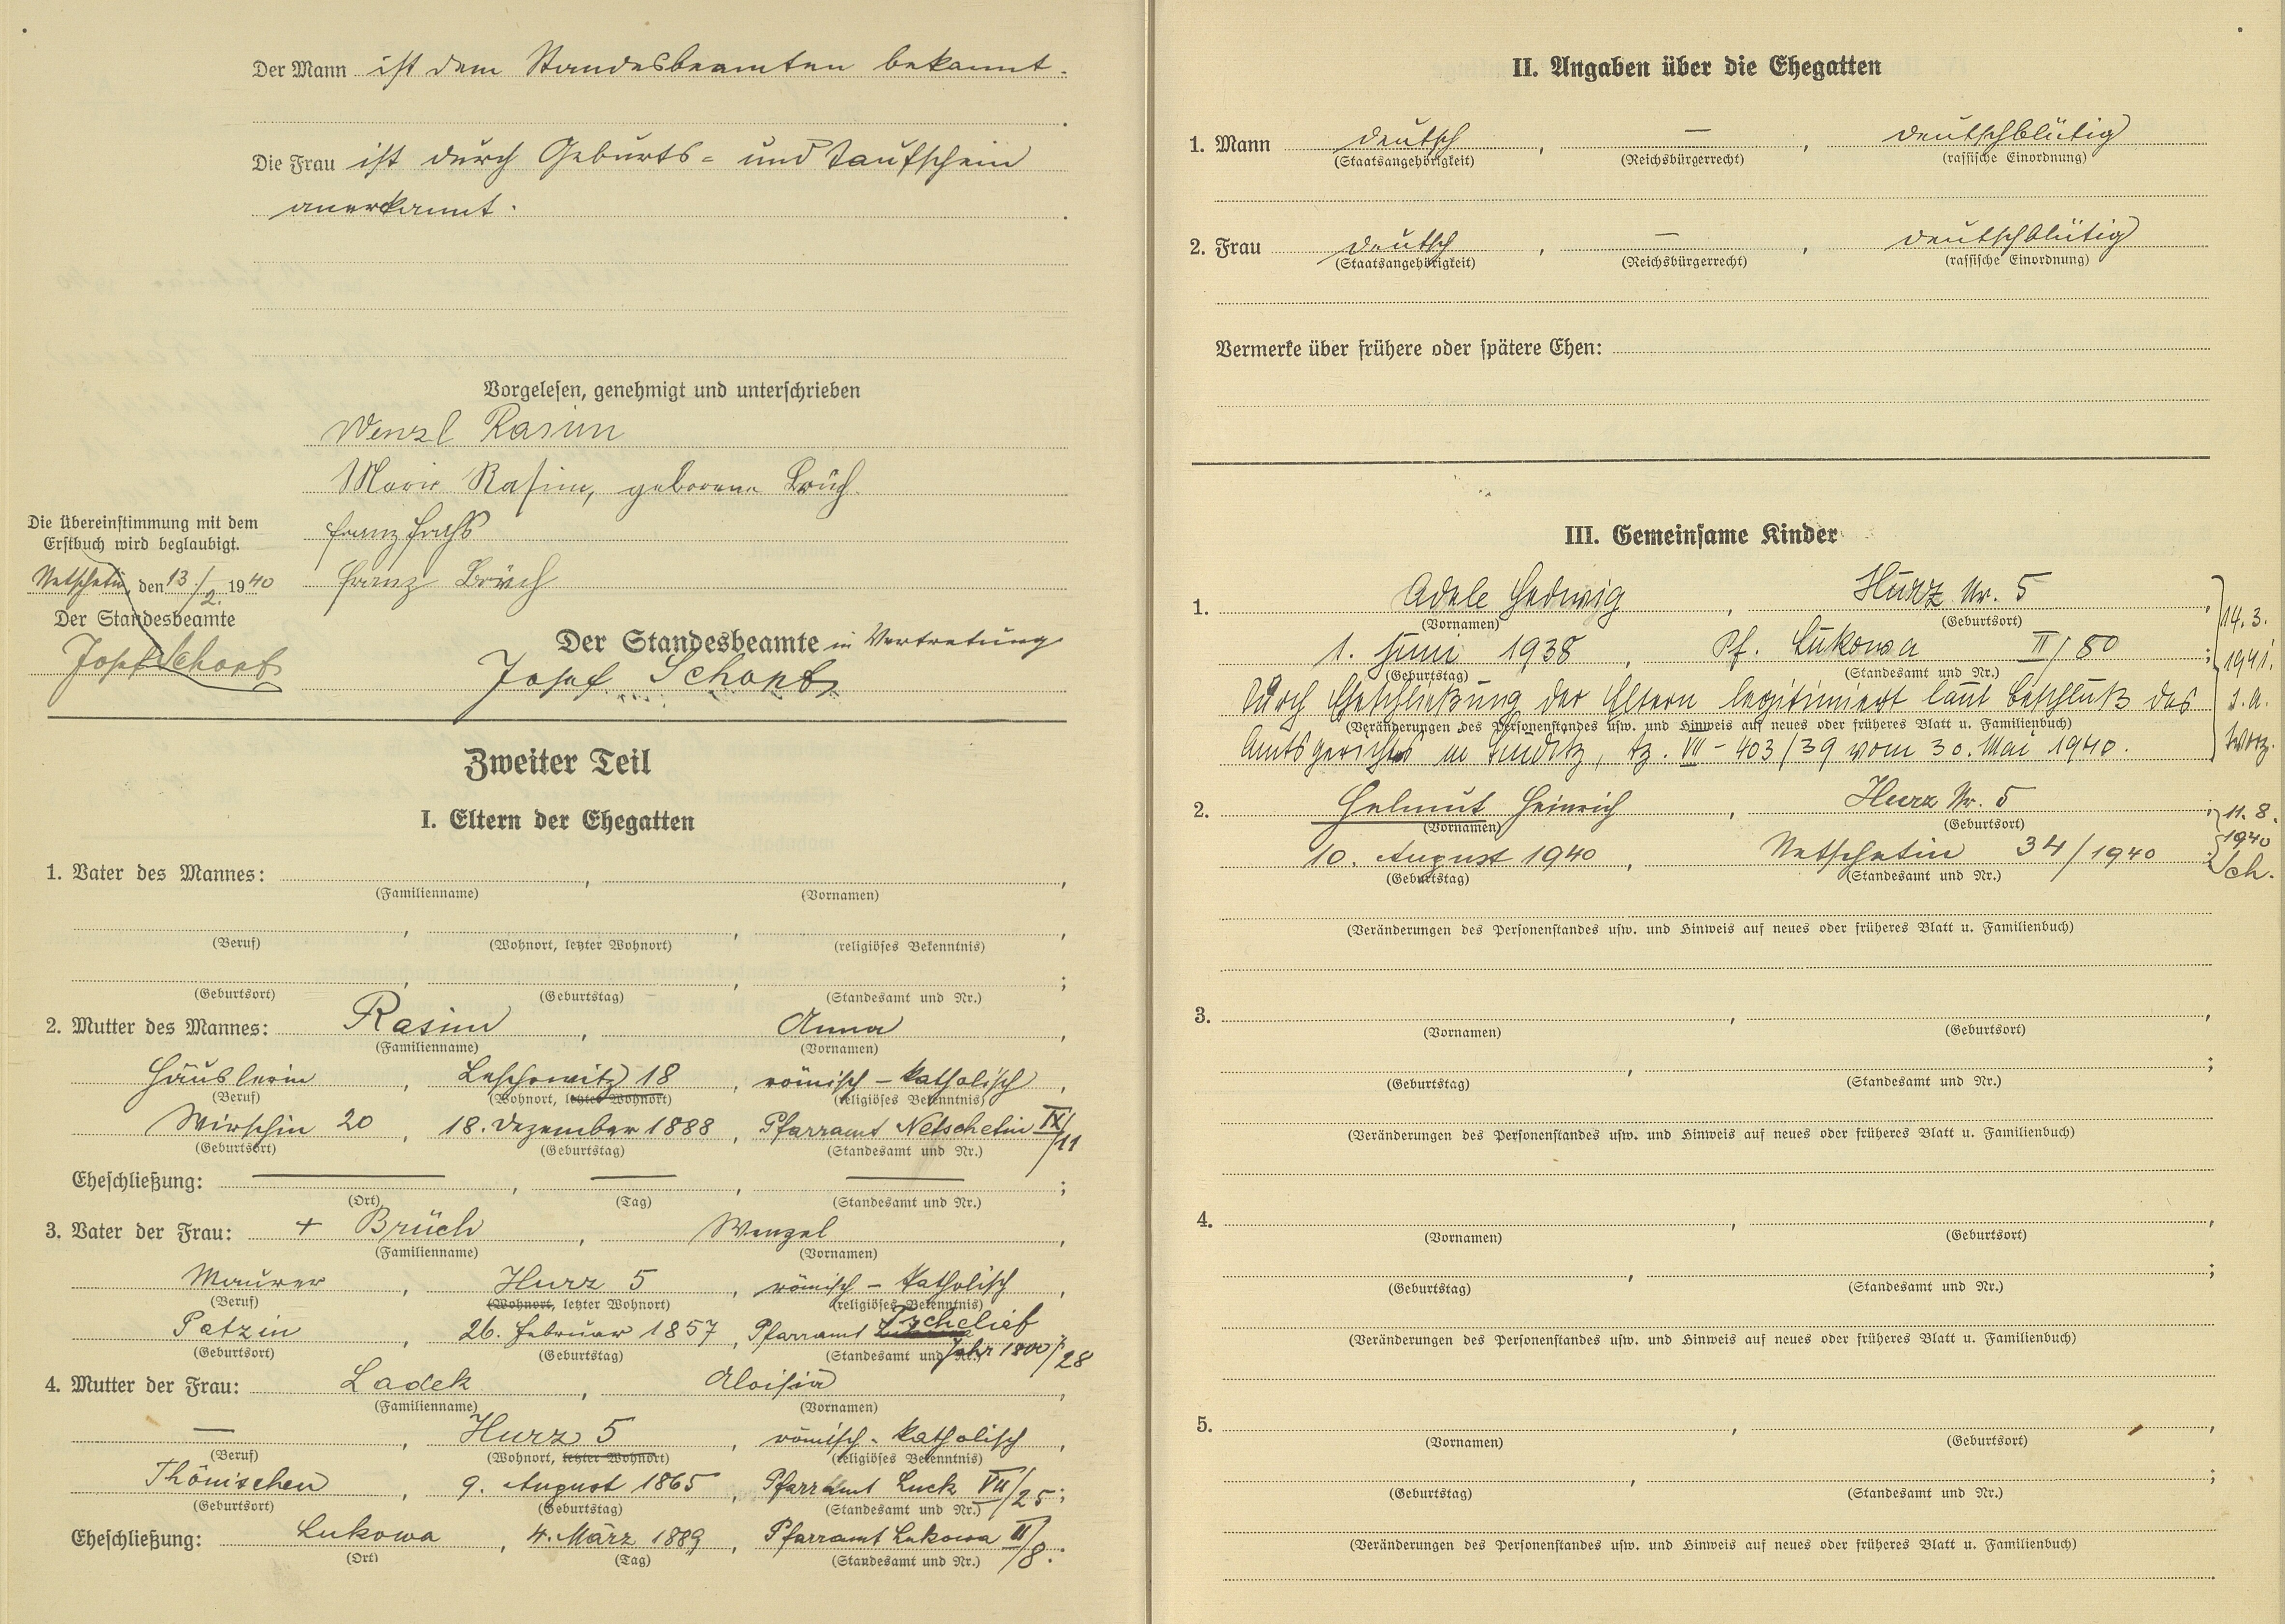 Der Mann ist dem Standesbeamten bekannt.
Die Frau ist durch Geburts- und Taufschein
anerkannt.
Vorgelesen, genehmigt und unterschrieben
Wenzl Rasim
Marie Rasim, geborene Brüch
Franz Fuchs
Franz Brüch
Die Übereinstimmung mit dem
Erstbuch wird beglaubigt.
Netschetin, den 13./2. 1940
Der Standesbeamte
Josef Schopf
Der Standesbeamte in Vertretung
Josef Schopf
Zweiter Teil
I. Eltern der Ehegatten
1. Vater des Mannes: , ,
(Familienname) (Vornamen)
(Beruf) (Wohnort, letzter Wohnort) (religiöses Bekenntnis)
(Geburtsort) (Geburtstag) (Standesamt und Nr.)
2. Mutter des Mannes: Rasim, Anna,
(Familienname) (Vornamen)
Häuslerin, Leschowitz 18, römisch-katholisch,
(Beruf) (Wohnort, letzter Wohnort) (religiöses Bekenntnis)
Wirschin 20, 18. Dezember 1888, Pfarramt Netschetin IX/11
(Geburtsort) (Geburtstag) (Standesamt und Nr.)
Eheschließung: —, —, —;
(Ort) (Tag) (Standesamt und Nr.)
3. Vater der Frau: + Brüch, Wenzel,
(Familienname) (Vornamen)
Maurer, Hurz 5, römisch-katholisch,
(Beruf) (Wohnort, letzter Wohnort) (religiöses Bekenntnis)
Patzin, 26. Februar 1857, Pfarramt Tschelief
(Geburtsort) (Geburtstag) (Standesamt und Nr.) Jahr 1800/28
4. Mutter der Frau: Ladek, Aloisia,
(Familienname) (Vornamen)
—, Hurz 5, römisch-katholisch,
(Beruf) (Wohnort, letzter Wohnort) (religiöses Bekenntnis)
Thönischen, 9. August 1865, Pfarramt Luck VII/25;
(Geburtsort) (Geburtstag) (Standesamt und Nr.)
Eheschließung: Lukowa, 4. März 1889, Pfarramt Lukowa II/8.
(Ort) (Tag) (Standesamt und Nr.)
II. Angaben über die Ehegatten
1. Mann deutsch, —, deutschblütig
(Staatsangehörigkeit) (Reichsbürgerrecht) (rassische Einordnung)
2. Frau deutsch, —, deutschblütig
(Staatsangehörigkeit) (Reichsbürgerrecht) (rassische Einordnung)
Vermerke über frühere oder spätere Ehen:
III. Gemeinsame Kinder
1. Adele Hedwig, Hurz Nr. 5,
(Vornamen) (Geburtsort)
1. Juni 1938, Pf. Lukowa II/80;
(Geburtstag) (Standesamt und Nr.)
Durch Eheschließung der Eltern legitimiert laut Beschluß des
(Veränderungen des Personenstandes usw. und Hinweis auf neues oder früheres Blatt u. Familienbuch)
Amtsgerichts in Luditz, Az. VII-403/39 vom 30. Mai 1940.
14.3.
1941.
2. Helmut Heinrich, Hurz Nr. 5
(Vornamen) (Geburtsort)
10. August 1940, Netschetin 34/1940
(Geburtstag) (Standesamt und Nr.)
11.8.
1940
Sch.
(Veränderungen des Personenstandes usw. und Hinweis auf neues oder früheres Blatt u. Familienbuch)
3. , ,
(Vornamen) (Geburtsort)
(Geburtstag) (Standesamt und Nr.)
(Veränderungen des Personenstandes usw. und Hinweis auf neues oder früheres Blatt u. Familienbuch)
4. , ,
(Vornamen) (Geburtsort)
(Geburtstag) (Standesamt und Nr.)
(Veränderungen des Personenstandes usw. und Hinweis auf neues oder früheres Blatt u. Familienbuch)
5. , ,
(Vornamen) (Geburtsort)
(Geburtstag) (Standesamt und Nr.)
(Veränderungen des Personenstandes usw. und Hinweis auf neues oder früheres Blatt u. Familienbuch)